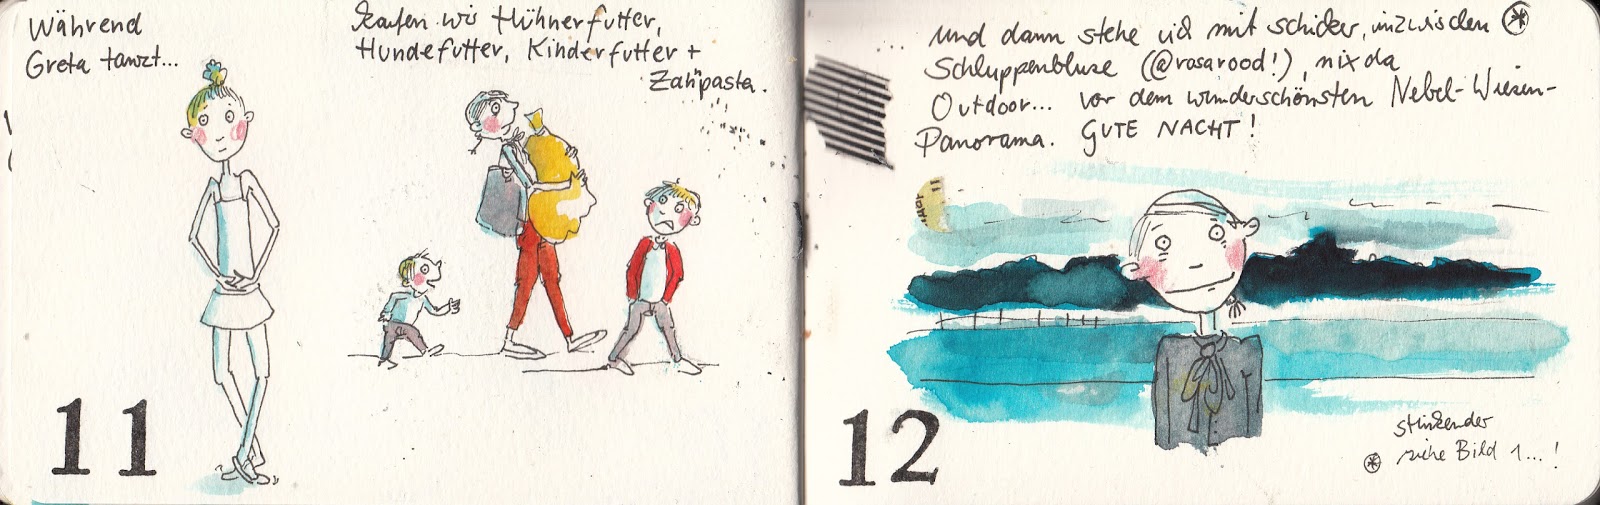 Während
Greta tanzt...
kaufen wir Hühnerfutter,
Hundefutter, Kinderfutter +
Zahnpasta.
11
und dann stehe ich mit schicker, inzwischen ⊛
Schluppenbluse (@rosarood!), nix da
Outdoor... vor dem wunderschönsten Nebel-Wiesen-
Panorama. GUTE NACHT!
12
stinkender
⊛ siehe Bild 1...!